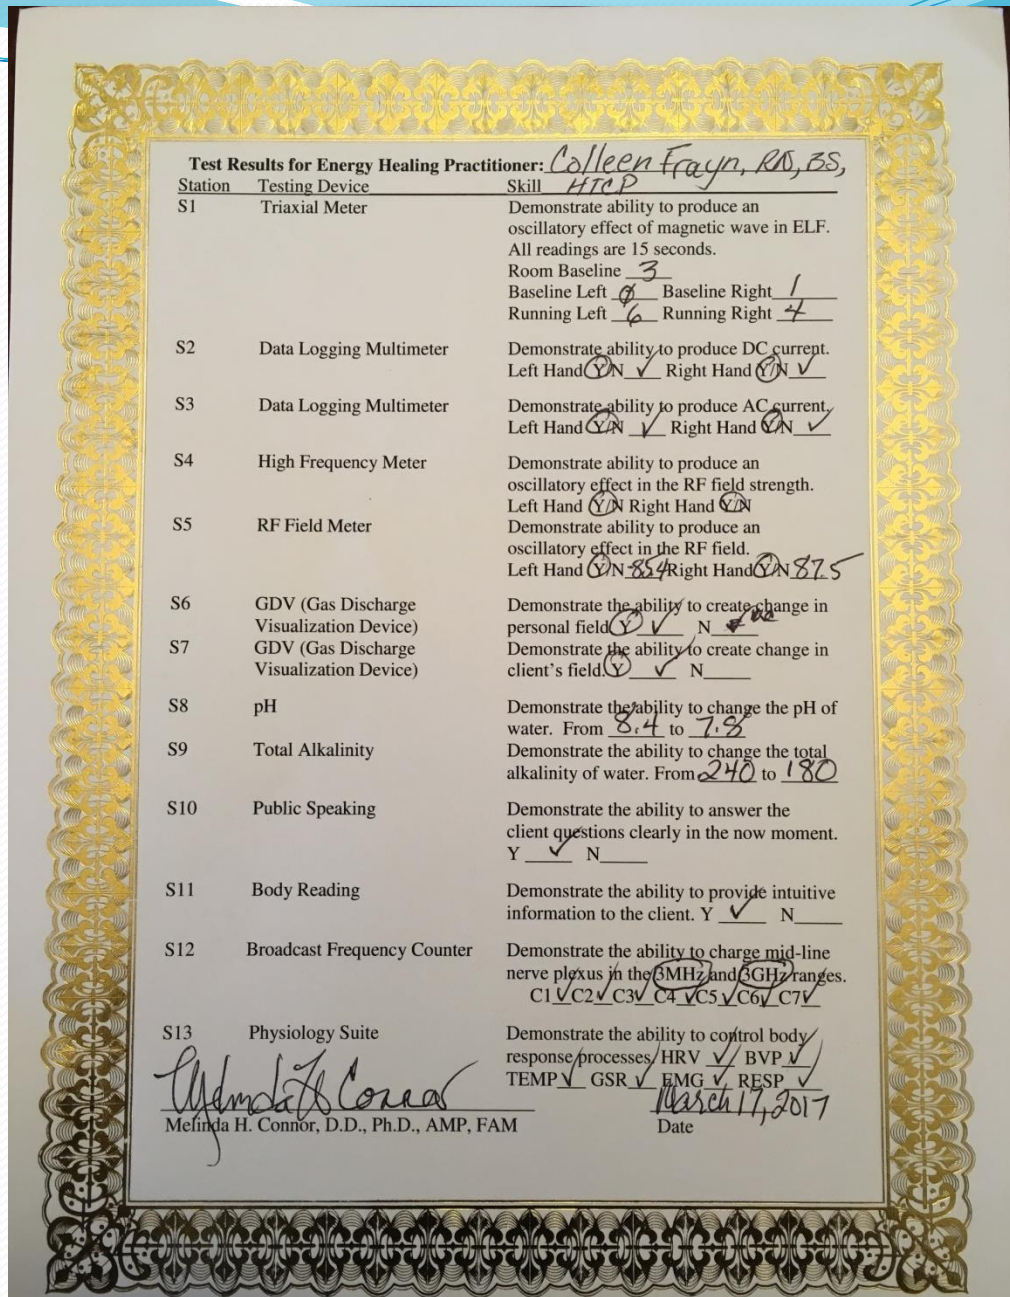 Test Results for Energy Healing Practitioner: Colleen Frayn, RN, BS,
Station Testing Device Skill HTCP
S1 Triaxial Meter Demonstrate ability to produce an
oscillatory effect of magnetic wave in ELF.
All readings are 15 seconds.
Room Baseline 3
Baseline Left 0 Baseline Right 1
Running Left 6 Running Right 4
S2 Data Logging Multimeter Demonstrate ability to produce DC current.
Left Hand Y/N ✓ Right Hand Y/N ✓
S3 Data Logging Multimeter Demonstrate ability to produce AC current.
Left Hand Y/N ✓ Right Hand Y/N ✓
S4 High Frequency Meter Demonstrate ability to produce an
oscillatory effect in the RF field strength.
Left Hand Y/N Right Hand Y/N
S5 RF Field Meter Demonstrate ability to produce an
oscillatory effect in the RF field.
Left Hand Y/N 854 Right Hand Y/N 87.5
S6 GDV (Gas Discharge Demonstrate the ability to create change in
Visualization Device) personal field. Y ✓ N
S7 GDV (Gas Discharge Demonstrate the ability to create change in
Visualization Device) client's field. Y ✓ N
S8 pH Demonstrate the ability to change the pH of
water. From 8.4 to 7.8
S9 Total Alkalinity Demonstrate the ability to change the total
alkalinity of water. From 240 to 180
S10 Public Speaking Demonstrate the ability to answer the
client questions clearly in the now moment.
Y ✓ N
S11 Body Reading Demonstrate the ability to provide intuitive
information to the client. Y ✓ N
S12 Broadcast Frequency Counter Demonstrate the ability to charge mid-line
nerve plexus in the 3MHz and 3GHz ranges.
C1 ✓ C2 ✓ C3 ✓ C4 ✓ C5 ✓ C6 ✓ C7 ✓
S13 Physiology Suite Demonstrate the ability to control body
response processes HRV ✓ BVP ✓
TEMP ✓ GSR ✓ EMG ✓ RESP ✓
Melinda H Connor March 17, 2017
Melinda H. Connor, D.D., Ph.D., AMP, FAM Date